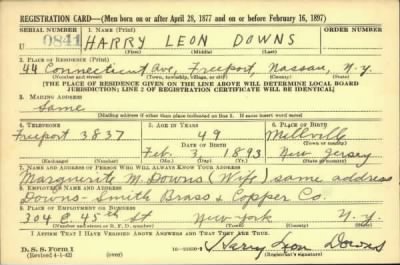 REGISTRATION CARD—(Men born on or after April 28, 1877 and on or before February 16, 1897)
SERIAL NUMBER 1. NAME (Print) ORDER NUMBER
U 0841 HARRY LEON DOWNS
(First) (Middle) (Last)
2. PLACE OF RESIDENCE (Print)
44 Connecticut Ave, Freeport Nassau, N.Y.
(Number and street) (Town, township, village, or city) (County) (State)
[THE PLACE OF RESIDENCE GIVEN ON THE LINE ABOVE WILL DETERMINE LOCAL BOARD
JURISDICTION; LINE 2 OF REGISTRATION CERTIFICATE WILL BE IDENTICAL]
3. MAILING ADDRESS
Same
[Mailing address if other than place indicated on line 2. If same insert word same]
4. TELEPHONE 5. AGE IN YEARS 6. PLACE OF BIRTH
Freeport 3837 49 Millville
DATE OF BIRTH (Town or county)
Feb. 3 1893 New Jersey
(Exchange) (Number) (Mo.) (Day) (Yr.) (State or country)
7. NAME AND ADDRESS OF PERSON WHO WILL ALWAYS KNOW YOUR ADDRESS
Marguerite M. Downs (Wife) same address
8. EMPLOYER'S NAME AND ADDRESS
Downs-Smith Brass & Copper Co.
9. PLACE OF EMPLOYMENT OR BUSINESS
304 E. 45th St New York N.Y.
(Number and street or R. F. D. number) (Town) (County) (State)
I AFFIRM THAT I HAVE VERIFIED ABOVE ANSWERS AND THAT THEY ARE TRUE.
D. S. S. Form 1 Harry Leon Downs
(Revised 4-1-42) (over) (Registrant's signature)